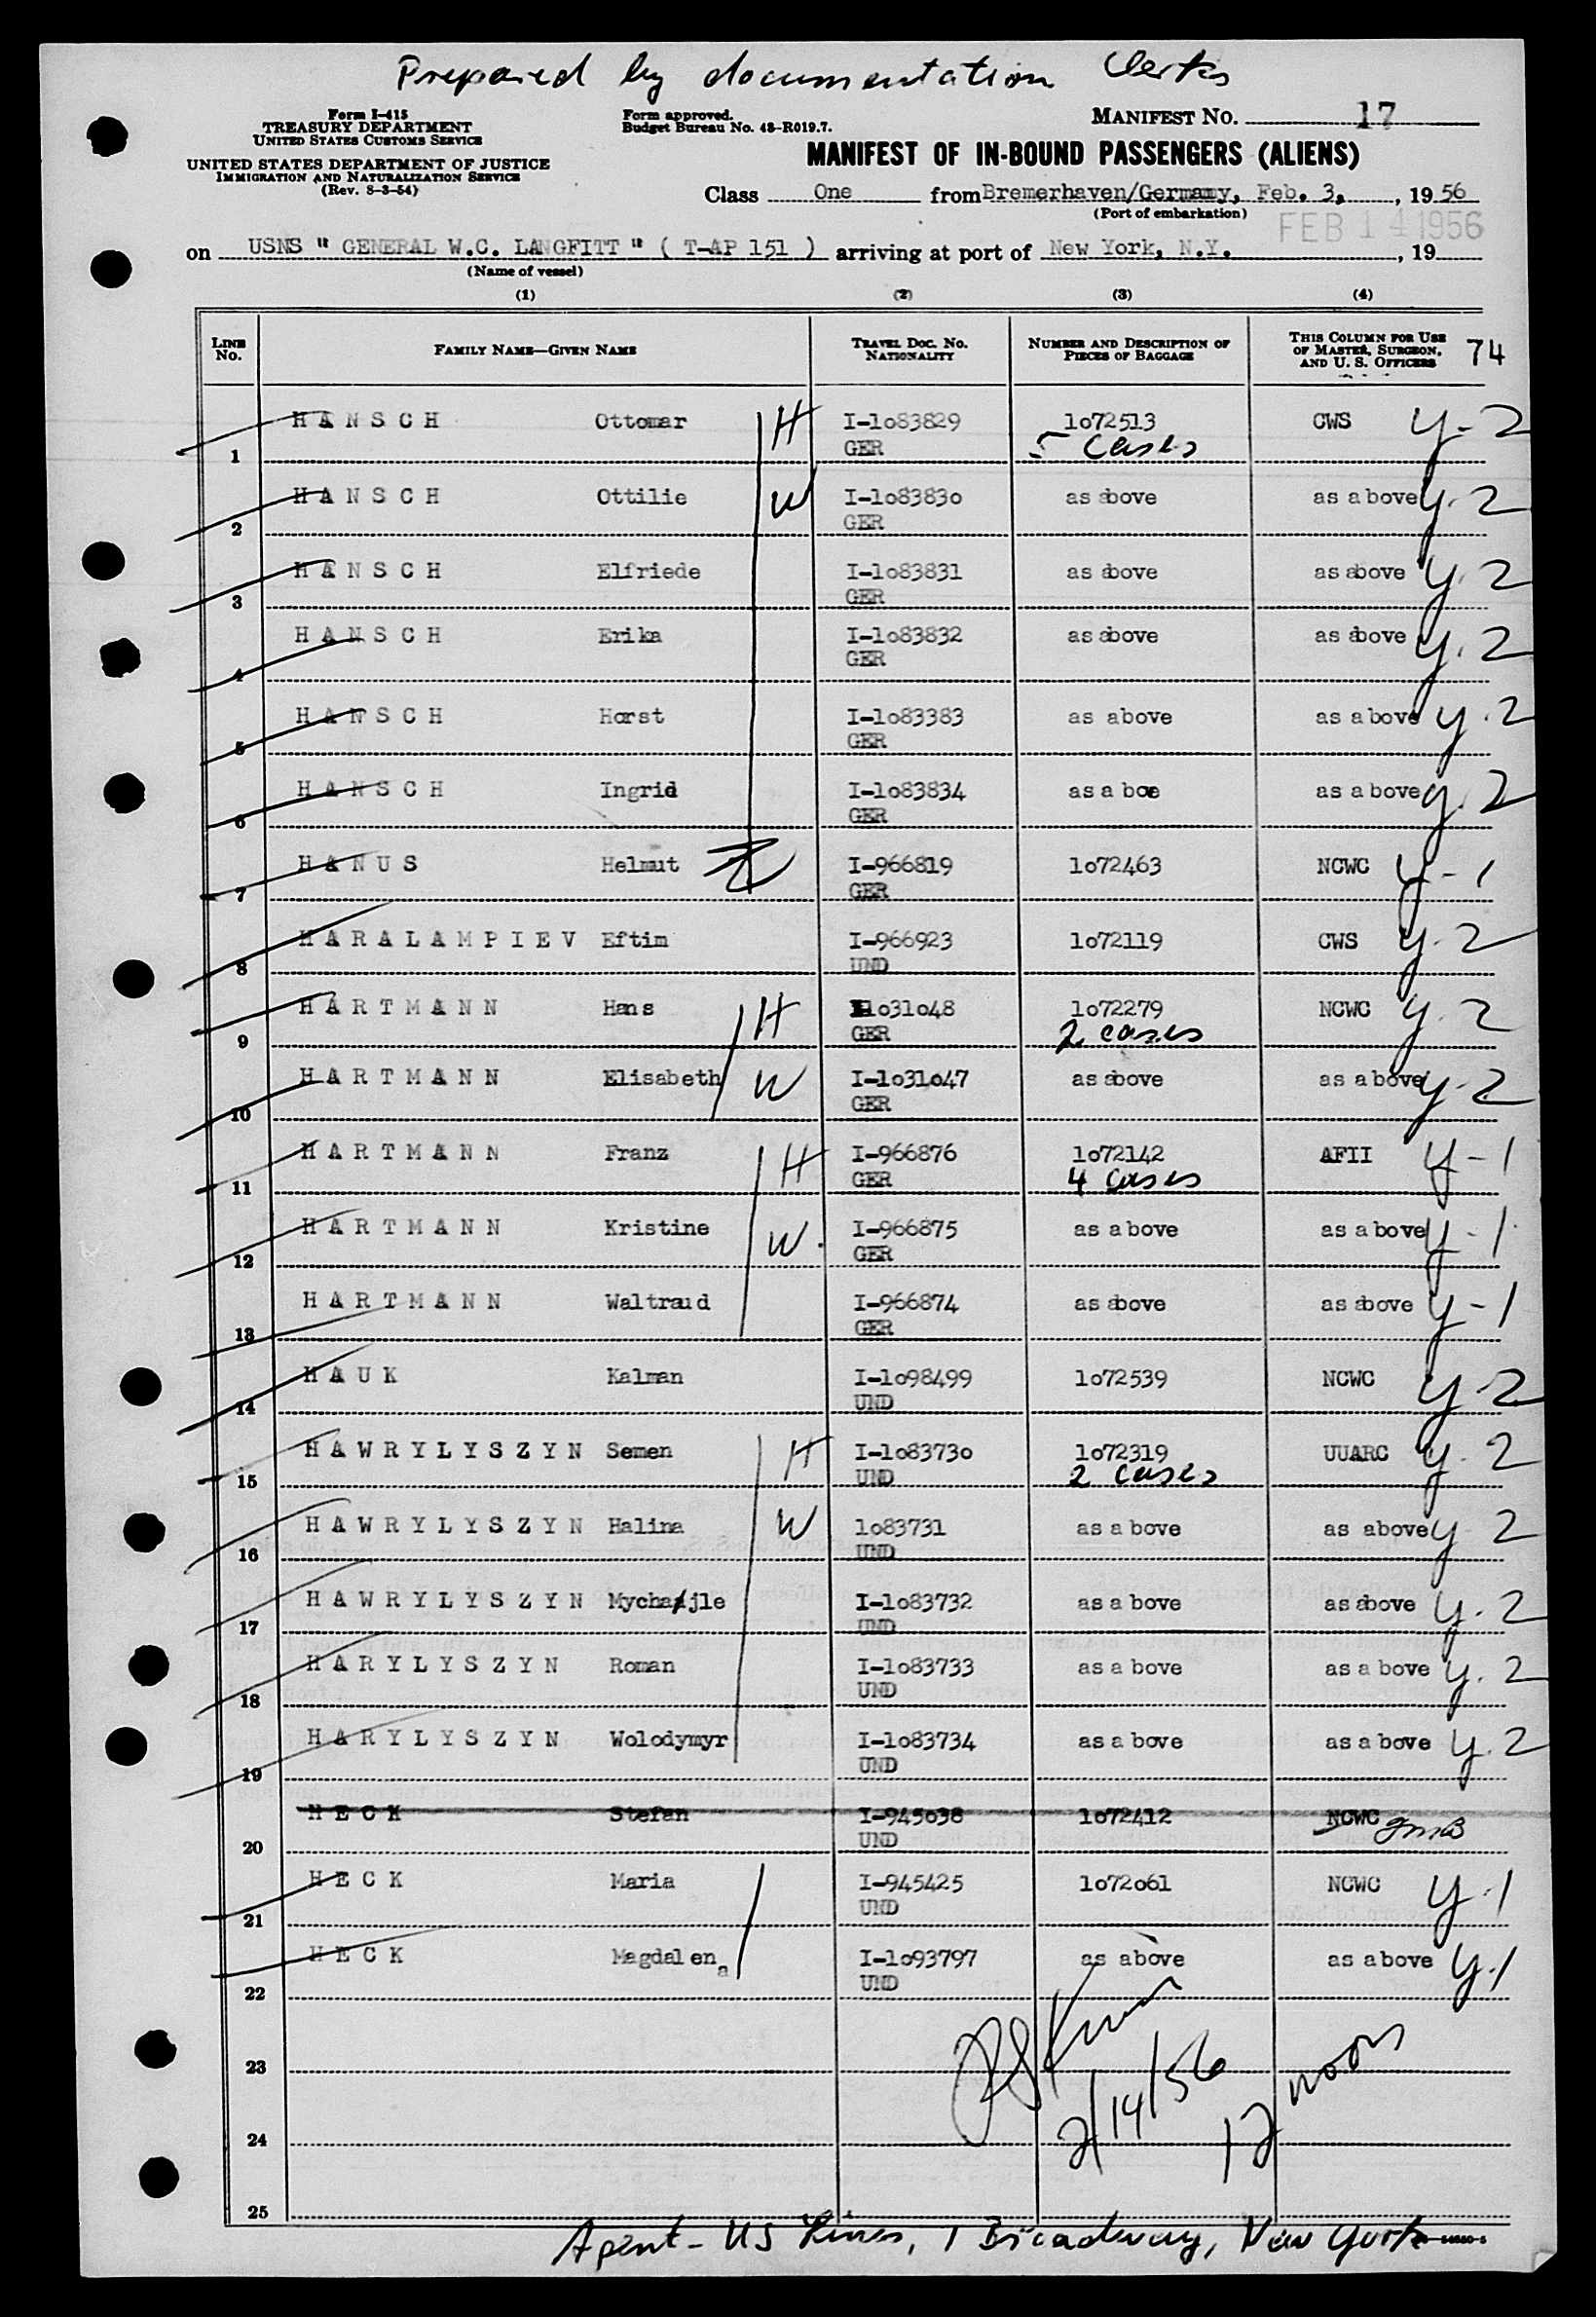 Prepared by documentation Clerks
Form I-415
TREASURY DEPARTMENT
UNITED STATES CUSTOMS SERVICE
UNITED STATES DEPARTMENT OF JUSTICE
IMMIGRATION AND NATURALIZATION SERVICE
(Rev. 8-3-54)
Form approved.
Budget Bureau No. 43-R019.7.
MANIFEST NO. 17
MANIFEST OF IN-BOUND PASSENGERS (ALIENS)
Class One from Bremerhaven/Germany, Feb. 3, , 19 56
(Port of embarkation)
FEB 14 1956
on USNS " GENERAL W.C. LANGFITT " ( T-AP 151 ) arriving at port of New York, N.Y. , 19
(Name of vessel)
(1) (2) (3) (4)
LINE No. FAMILY NAME—GIVEN NAME TRAVEL DOC. NO. NATIONALITY NUMBER AND DESCRIPTION OF PIECES OF BAGGAGE THIS COLUMN FOR USE OF MASTER, SURGEON, AND U. S. OFFICERS 74
1 HANSCH Ottomar H I-1o83829 GER 1o72513 5 cases CWS y-2
2 HANSCH Ottilie W I-1o8383o GER as above as above y-2
3 HANSCH Elfriede I-1o83831 GER as above as above y.2
4 HANSCH Erika I-1o83832 GER as above as above y.2
5 HANSCH Horst I-1o83383 GER as above as above y.2
6 HANSCH Ingrid I-1o83834 GER as a boe as above y.2
7 HANUS Helmut I-966819 GER 1o72463 NCWC y-1
8 HARALAMPIEV Eftim I-966923 UND 1o72119 CWS y-2
9 HARTMANN Hans H 1o31o48 GER 1o72279 2 cases NCWC y.2
10 HARTMANN Elisabeth W I-1o31o47 GER as above as above y-2
11 HARTMANN Franz H I-966876 GER 1o72142 4 cases AFII y-1
12 HARTMANN Kristine W. I-966875 GER as above as above y-1
13 HARTMANN Waltraud I-966874 GER as above as above y-1
14 HAUK Kalman I-1o98499 UND 1o72539 NCWC y-2
15 HAWRYLYSZYN Semen H I-1o8373o UND 1o72319 2 cases UUARC y.2
16 HAWRYLYSZYN Halina W 1o83731 UND as above as above y 2
17 HAWRYLYSZYN Mychajle I-1o83732 UND as above as above y.2
18 HARYLYSZYN Roman I-1o83733 UND as above as above y.2
19 HARYLYSZYN Wolodymyr I-1o83734 UND as above as above y.2
20 HECK Stefan I-945o38 UND 1o72412 NCWC
21 HECK Maria I-945425 UND 1o72o61 NCWC y.1
22 HECK Magdalena I-1o93797 UND as above as above y.1
23
24
2/14/56 12 noon
25
Agent - US Lines, 1 Broadway, New York